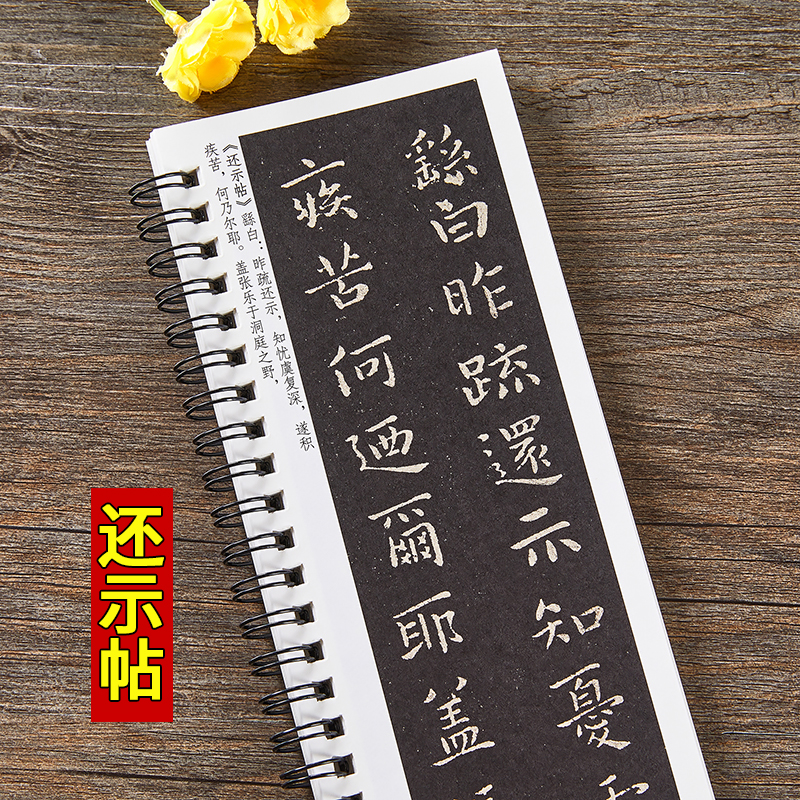 《还示帖》繇白：昨疏还示，知忧虞复深，遂积
疾苦，何乃尔耶。盖张乐于洞庭之野，
繇白昨疏還示知憂
疾苦何迺爾耶盖
还示帖